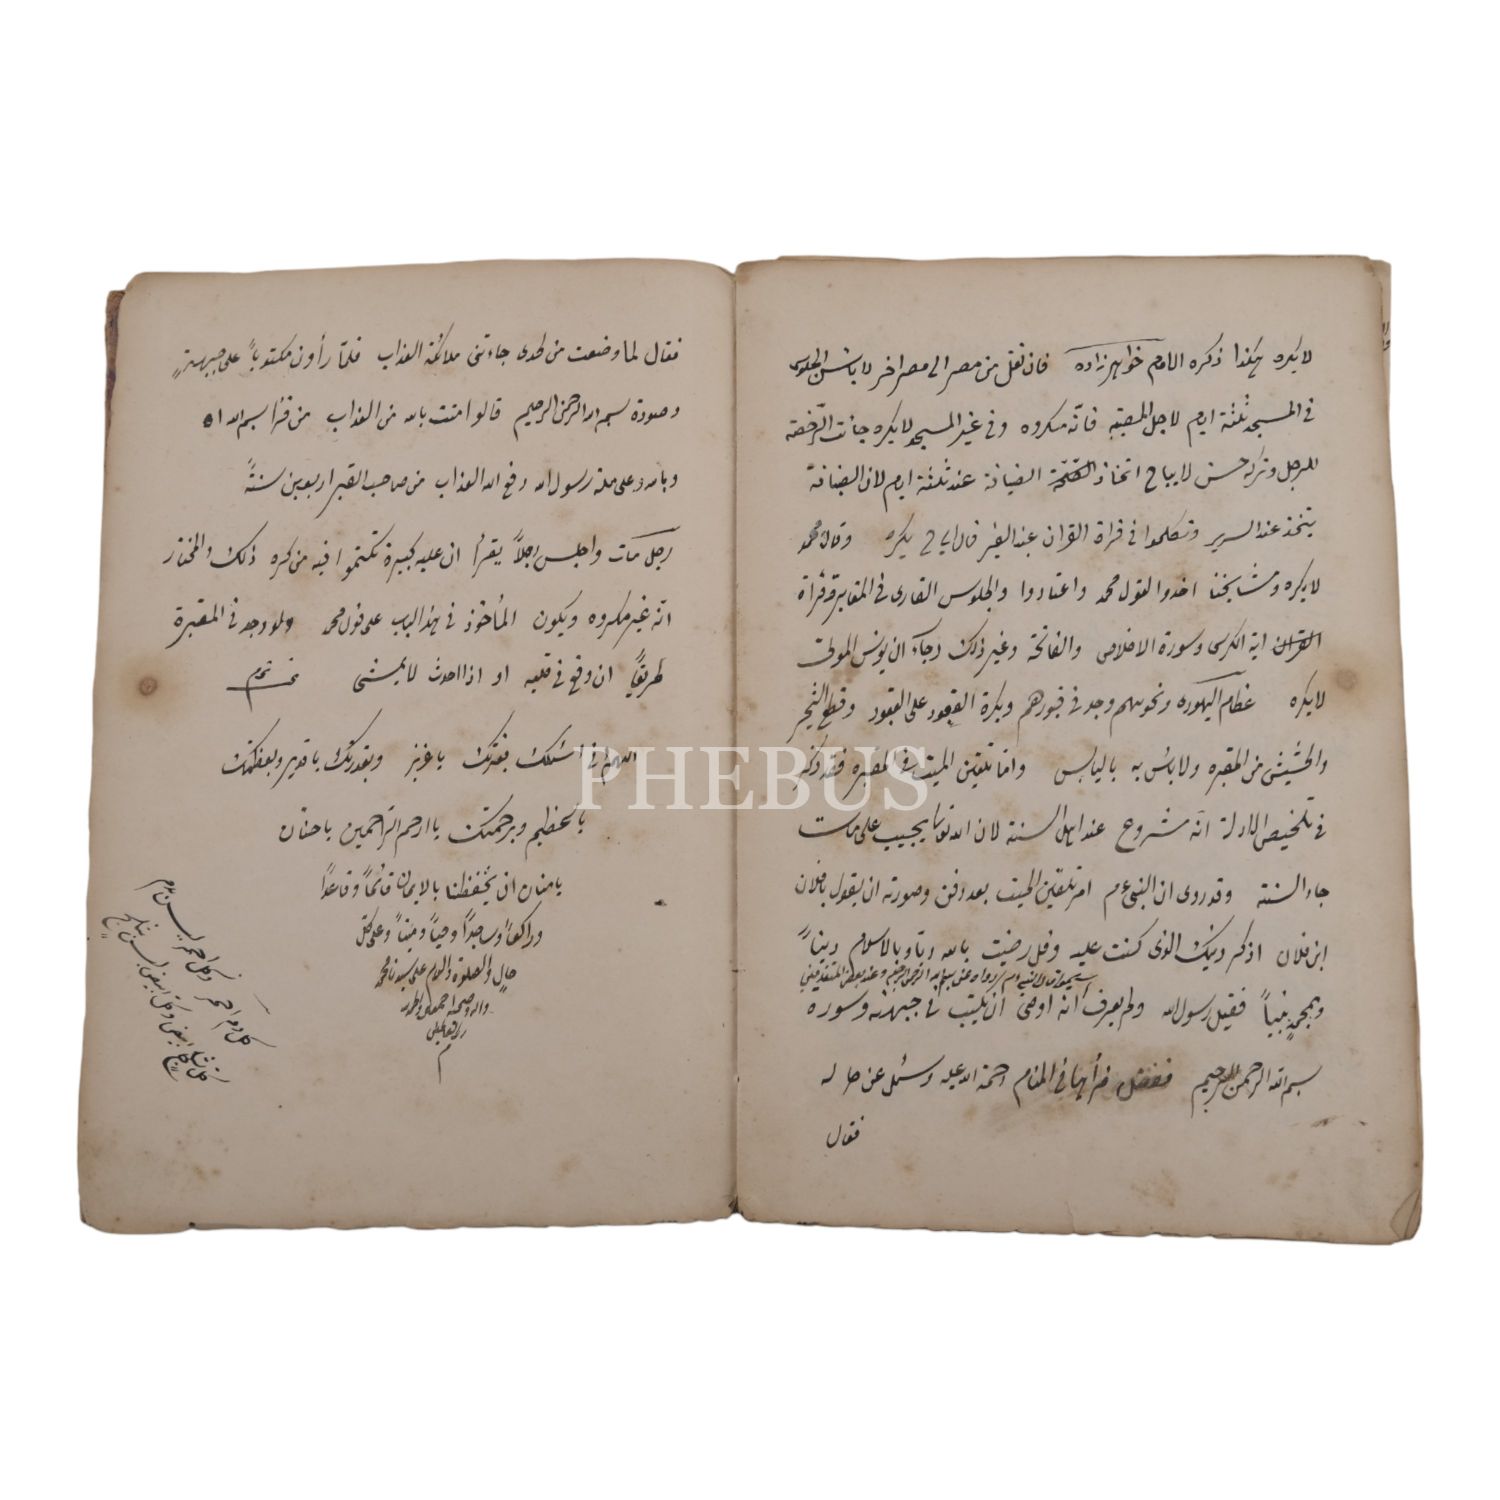 لا يكره هكذا ذكره الامام خواهرزاده فان نقل من مصر الى مصر اخر لا بأس الجلوس
في المسجد ثلثة ايام لاجل المصيبة فانّه مكروه وفي غير المسجد لا يكره جأت الرّخصة
للرجل وتركه حسن لا يباح اتخاذ الضيافة عند ثلثة ايام لان الضيافة
يتخذ عند السرير وتكلموا في قراة القران عند القبر قال يكره وقال محمد
لا يكره ومشايخنا اخذوا القول محمد واعتادوا والجلوس القارى في المقابر وقرأة
القران اية الكرسى وسورة الاخلاص والفاتحة وغير ذلك رجاء ان يونس الموتى
لا يكره عظام اليهود ونحوهم وجد في قبورهم ويكره القعود على القبور وقطع الشجر
والحشيش من المقبره ولا بأس به باليابس واما تلقين الميت في المقبره فقد ذكر
في تلخيص الادلة انه مشروع عند اهل السنة لان الله تعالى يجيب على ما
جاء السنة وقد روى ان النبي عم امر تلقين الميت بعد دفن وصورته ان يقول يا فلان
ابن فلان اذكر دينك الذى كنت عليه وقل رضيت بالله ربا وبالاسلام ديناً
وبمحمد نبياً فقيل رسول الله ولم يعرف انه اوصى ان يكتب في جبهته وسوره
بسم الله الرحمن الرحيم ففعل فرأيها في المنام رحمة الله عليه وسئل عن حاله
فقال
فقال لما وضعت من لحدى جاءتنى ملائكة العذاب فلمّا رأون مكتوباً على جبهتهٍ
وصورة بسم الله الرحمن الرحيم قالوا امنت بالله من العذاب من قرأ بسم الله
وبالله وعلى ملة رسول الله رفع الله العذاب من صاحب القبر اربعين سنةً
رجل مات واجلس رجلاً يقرأ ان عليه كبيرة تكتموا فيه من كره ذلك والمختار
انّه غير مكروه ويكون المأخوذ في هذا الباب على قول محمد ولو وجد في المقبرة
طريقاً ان وقع في قلبه او اذا احدث لا يمشى تم
اللهم انى اسئلك بعزتك يا عزيز وبقدرتك يا قدير وبعظمتك
يا عظيم وبرحمتك يا ارحم الراحمين يا حنان
يا منان ان تحفظنا بالايمان قائماً وقاعداً
وراكعاً وساجداً وحياً وميتاً وعلى كل
حالٍ والصلوة والسلام على سيدنا محمد
واله وصحبه اجمعين
م
PHEBUS